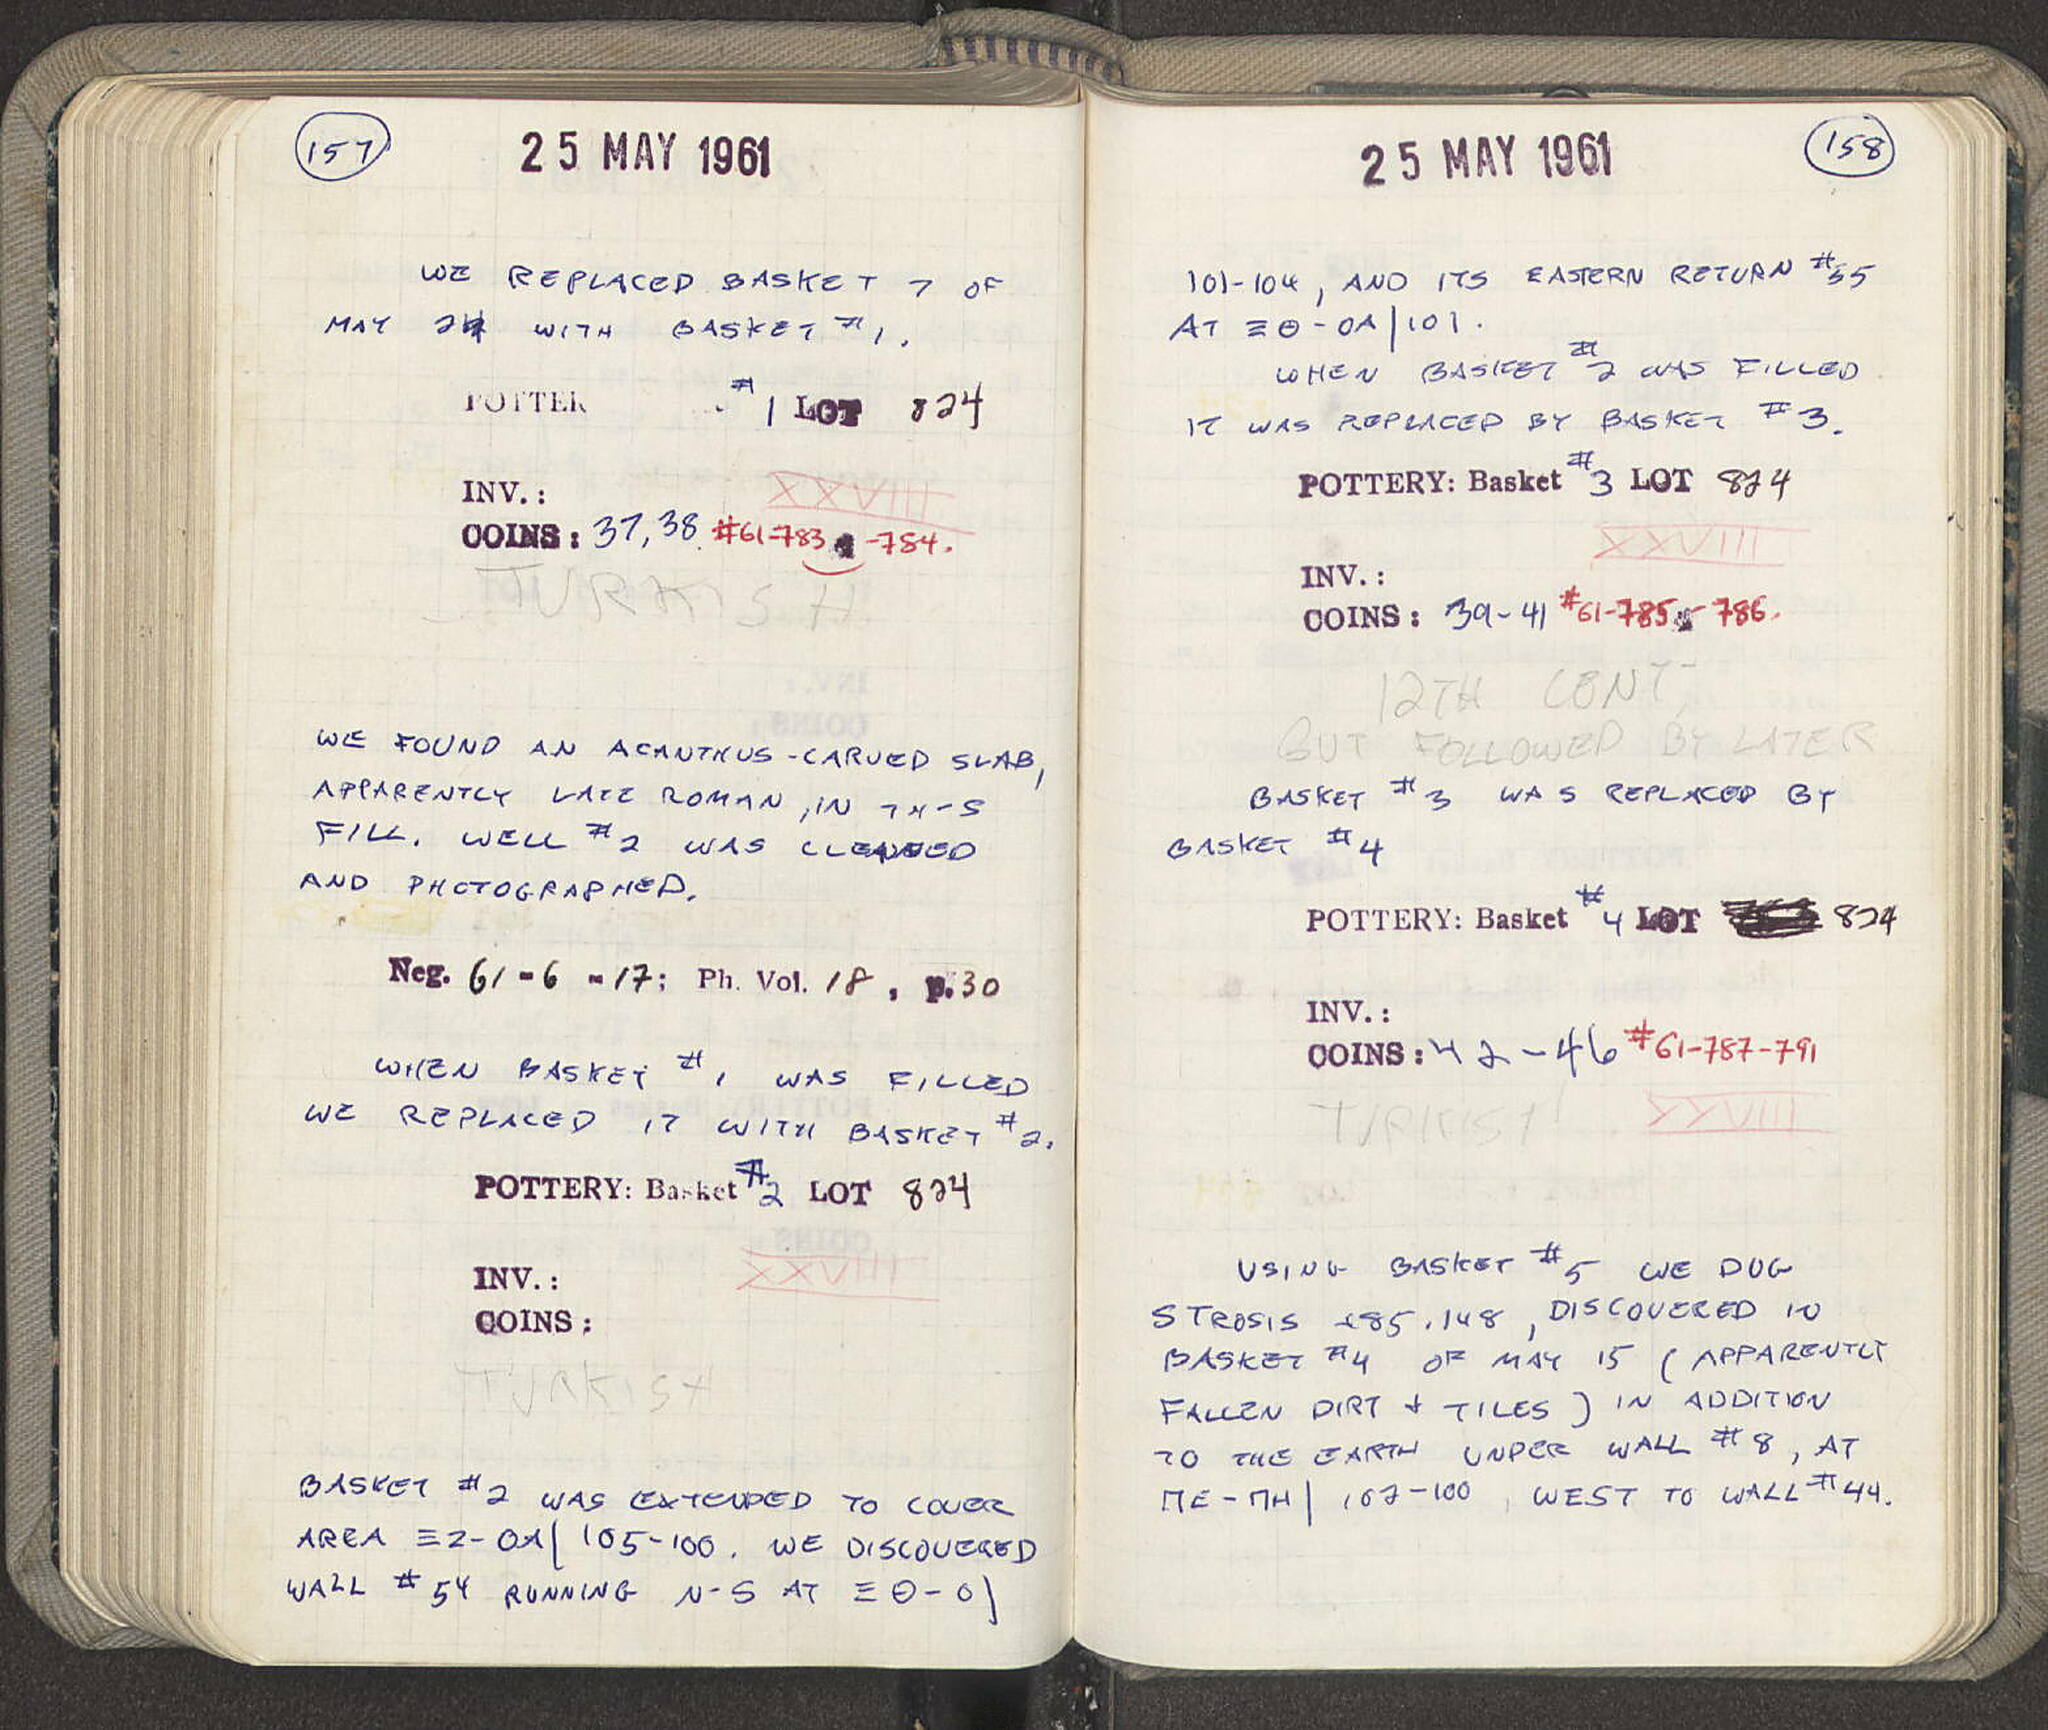 157
25 MAY 1961
WE REPLACED BASKET 7 OF
MAY 24 WITH BASKET #1.
POTTER #1 LOT 824
XXVIII
INV.:
COINS: 37, 38 #61-783 -784.
TURKISH
WE FOUND AN ACANTHUS-CARVED SLAB,
APPARENTLY LATE ROMAN, IN THIS
FILL. WELL #2 WAS CLEANED
AND PHOTOGRAPHED.
Neg. 61-6-17; Ph. Vol. 18, p. 30
WHEN BASKET #1 WAS FILLED
WE REPLACED IT WITH BASKET #2.
POTTERY: Basket #2 LOT 824
XXVIII
INV.:
COINS:
TURKISH
BASKET #2 WAS EXTENDED TO COVER
AREA ΞZ-OA| 105-100. WE DISCOVERED
WALL #54 RUNNING N-S AT ΞΘ-O|
25 MAY 1961
158
101-104, AND ITS EASTERN RETURN #55
AT ΞΘ-OA|101.
WHEN BASKET #2 WAS FILLED
IT WAS REPLACED BY BASKET #3.
POTTERY: Basket #3 LOT 824
XXVIII
INV.:
COINS: 39-41 #61-785 - 786.
12TH CENT
BUT FOLLOWED BY LATER
BASKET #3 WAS REPLACED BY
BASKET #4
POTTERY: Basket #4 LOT 824
INV.:
COINS: 42-46 #61-787-791
TURKISH XXVIII
USING BASKET #5 WE DUG
STROSIS +85.148, DISCOVERED IN
BASKET #4 OF MAY 15 (APPARENTLY
FALLEN DIRT + TILES) IN ADDITION
TO THE EARTH UNDER WALL #8, AT
ΠE-ΠH| 102-100, WEST TO WALL #44.